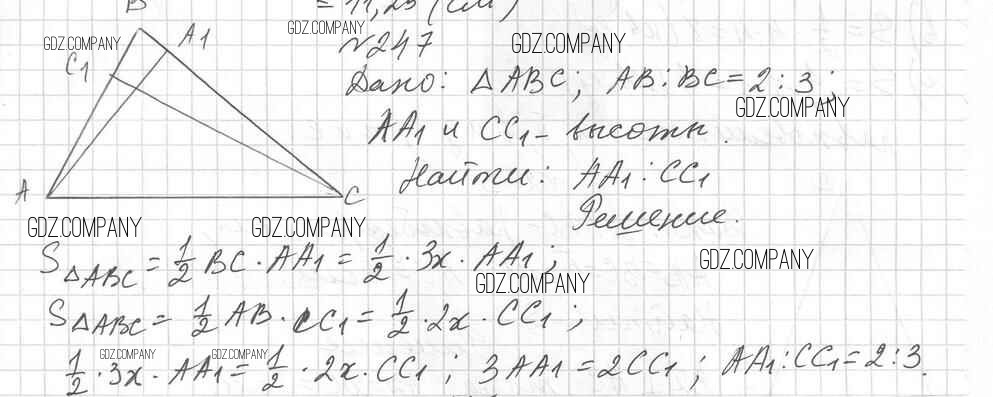 = 11,25 (см)
B
A1
C1
A
C
GDZ.COMPANY
GDZ.COMPANY
№247
GDZ.COMPANY
Дано: △ABC; AB:BC=2:3;
GDZ.COMPANY
AA1 и CC1 - высоты.
Найти: AA1:CC1
Решение.
GDZ.COMPANY
GDZ.COMPANY
GDZ.COMPANY
S△ABC = 1/2 BC · AA1 = 1/2 · 3x · AA1;
GDZ.COMPANY
S△ABC = 1/2 AB · CC1 = 1/2 · 2x · CC1;
GDZ.COMPANY
GDZ.COMPANY
1/2 · 3x · AA1 = 1/2 · 2x · CC1; 3AA1 = 2CC1; AA1:CC1=2:3.